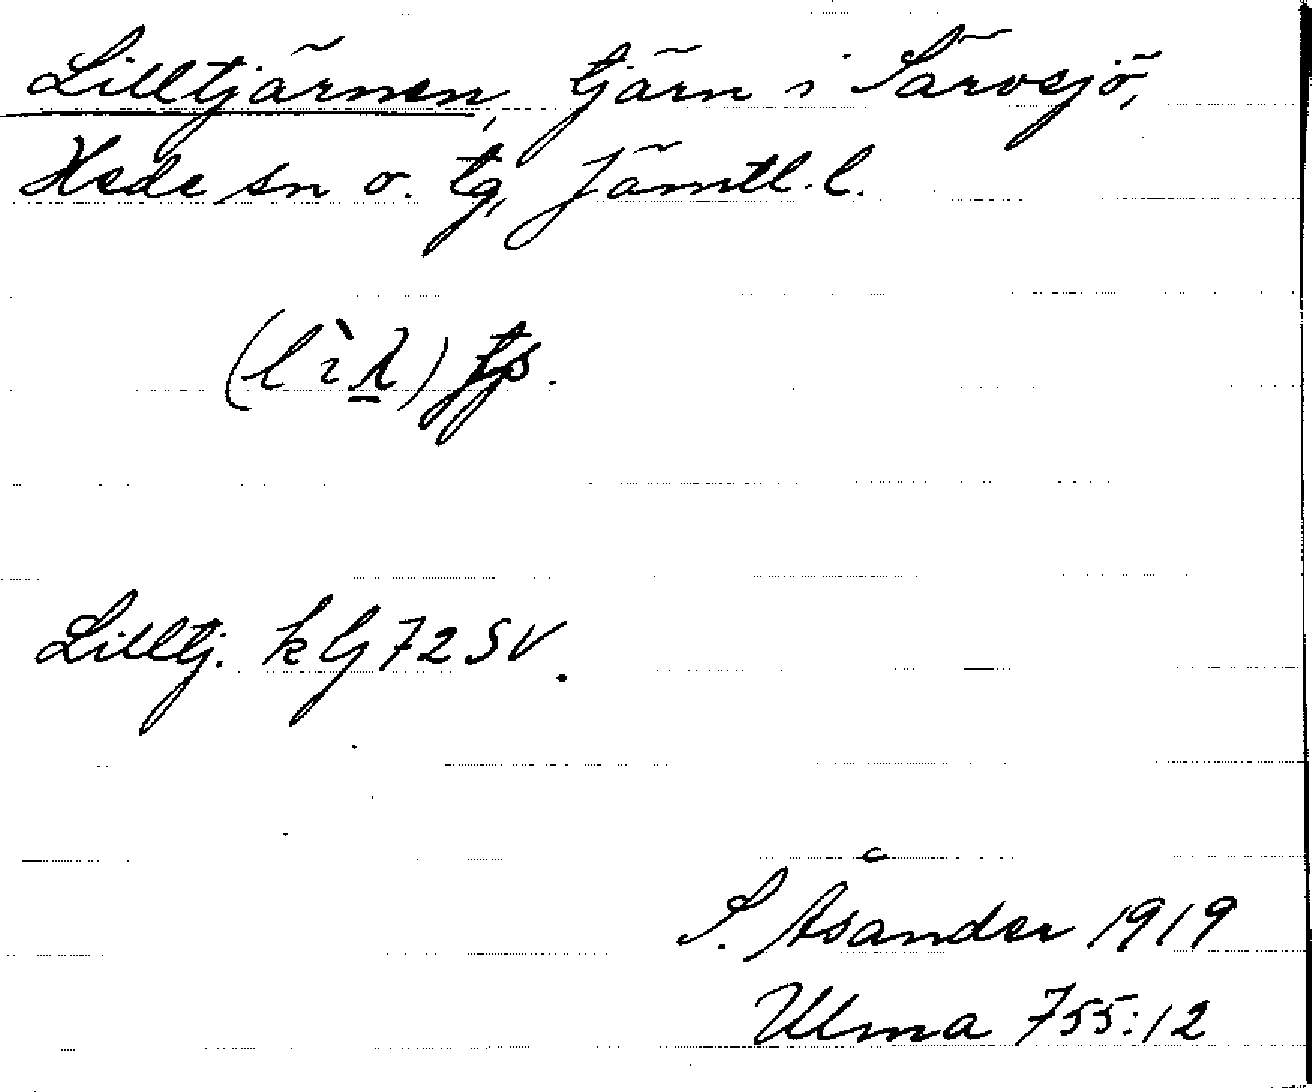 Lilltjärnen, tjärn i Särvsjö,
Hede sn o. tg, Jämtl. l.
Lilltj. k lj 72 SV.
S. Åsander 1919
Ulma 755:12